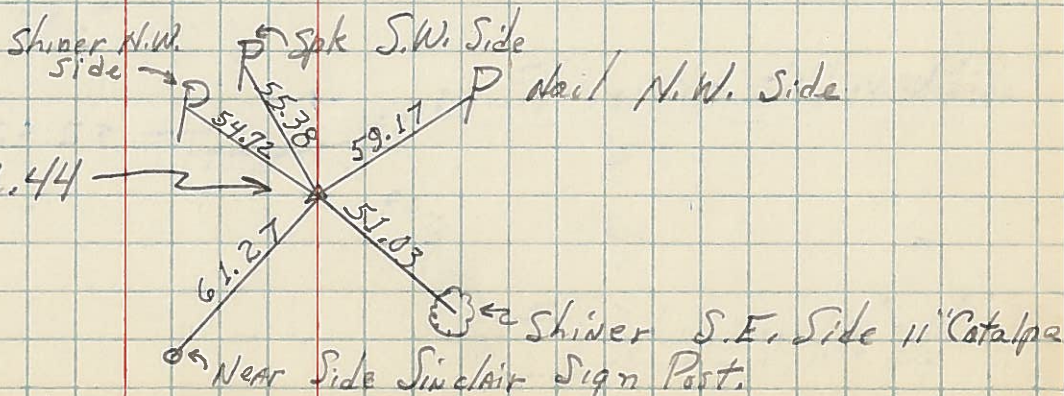 Shiner N.W.
Side
Spk S.W. Side
Nail N.W. Side
54.72
55.38
59.17
.44
61.27
51.03
Shiner S.E. Side 11" Catalpa
Near Side Sinclair Sign Post.